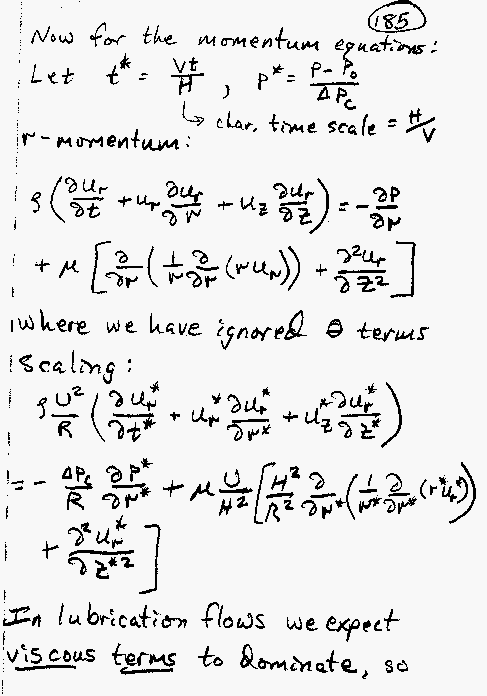 185
Now for the momentum equations:
Let t* = Vt/H , P* = (P - P₀)/ΔP_c
↳ char. time scale = H/V
r-momentum:
ρ (∂u_r/∂t + u_r ∂u_r/∂r + u_z ∂u_r/∂z) = - ∂P/∂r
+ μ [∂/∂r (1/r ∂/∂r (r u_r)) + ∂²u_r/∂z²]
where we have ignored θ terms
Scaling:
ρ U²/R (∂u_r*/∂t* + u_r* ∂u_r*/∂r* + u_z* ∂u_r*/∂z*)
= - ΔP_c/R ∂P*/∂r* + μ U/H² [H²/R² ∂/∂r* (1/r* ∂/∂r* (r* u_r*))
+ ∂²u_r*/∂z*²]
In lubrication flows we expect
viscous terms to dominate, so